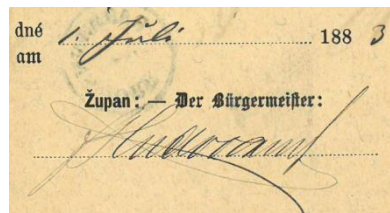 dné
am 1. Juli 188 3
Župan: — Der Bürgermeister: